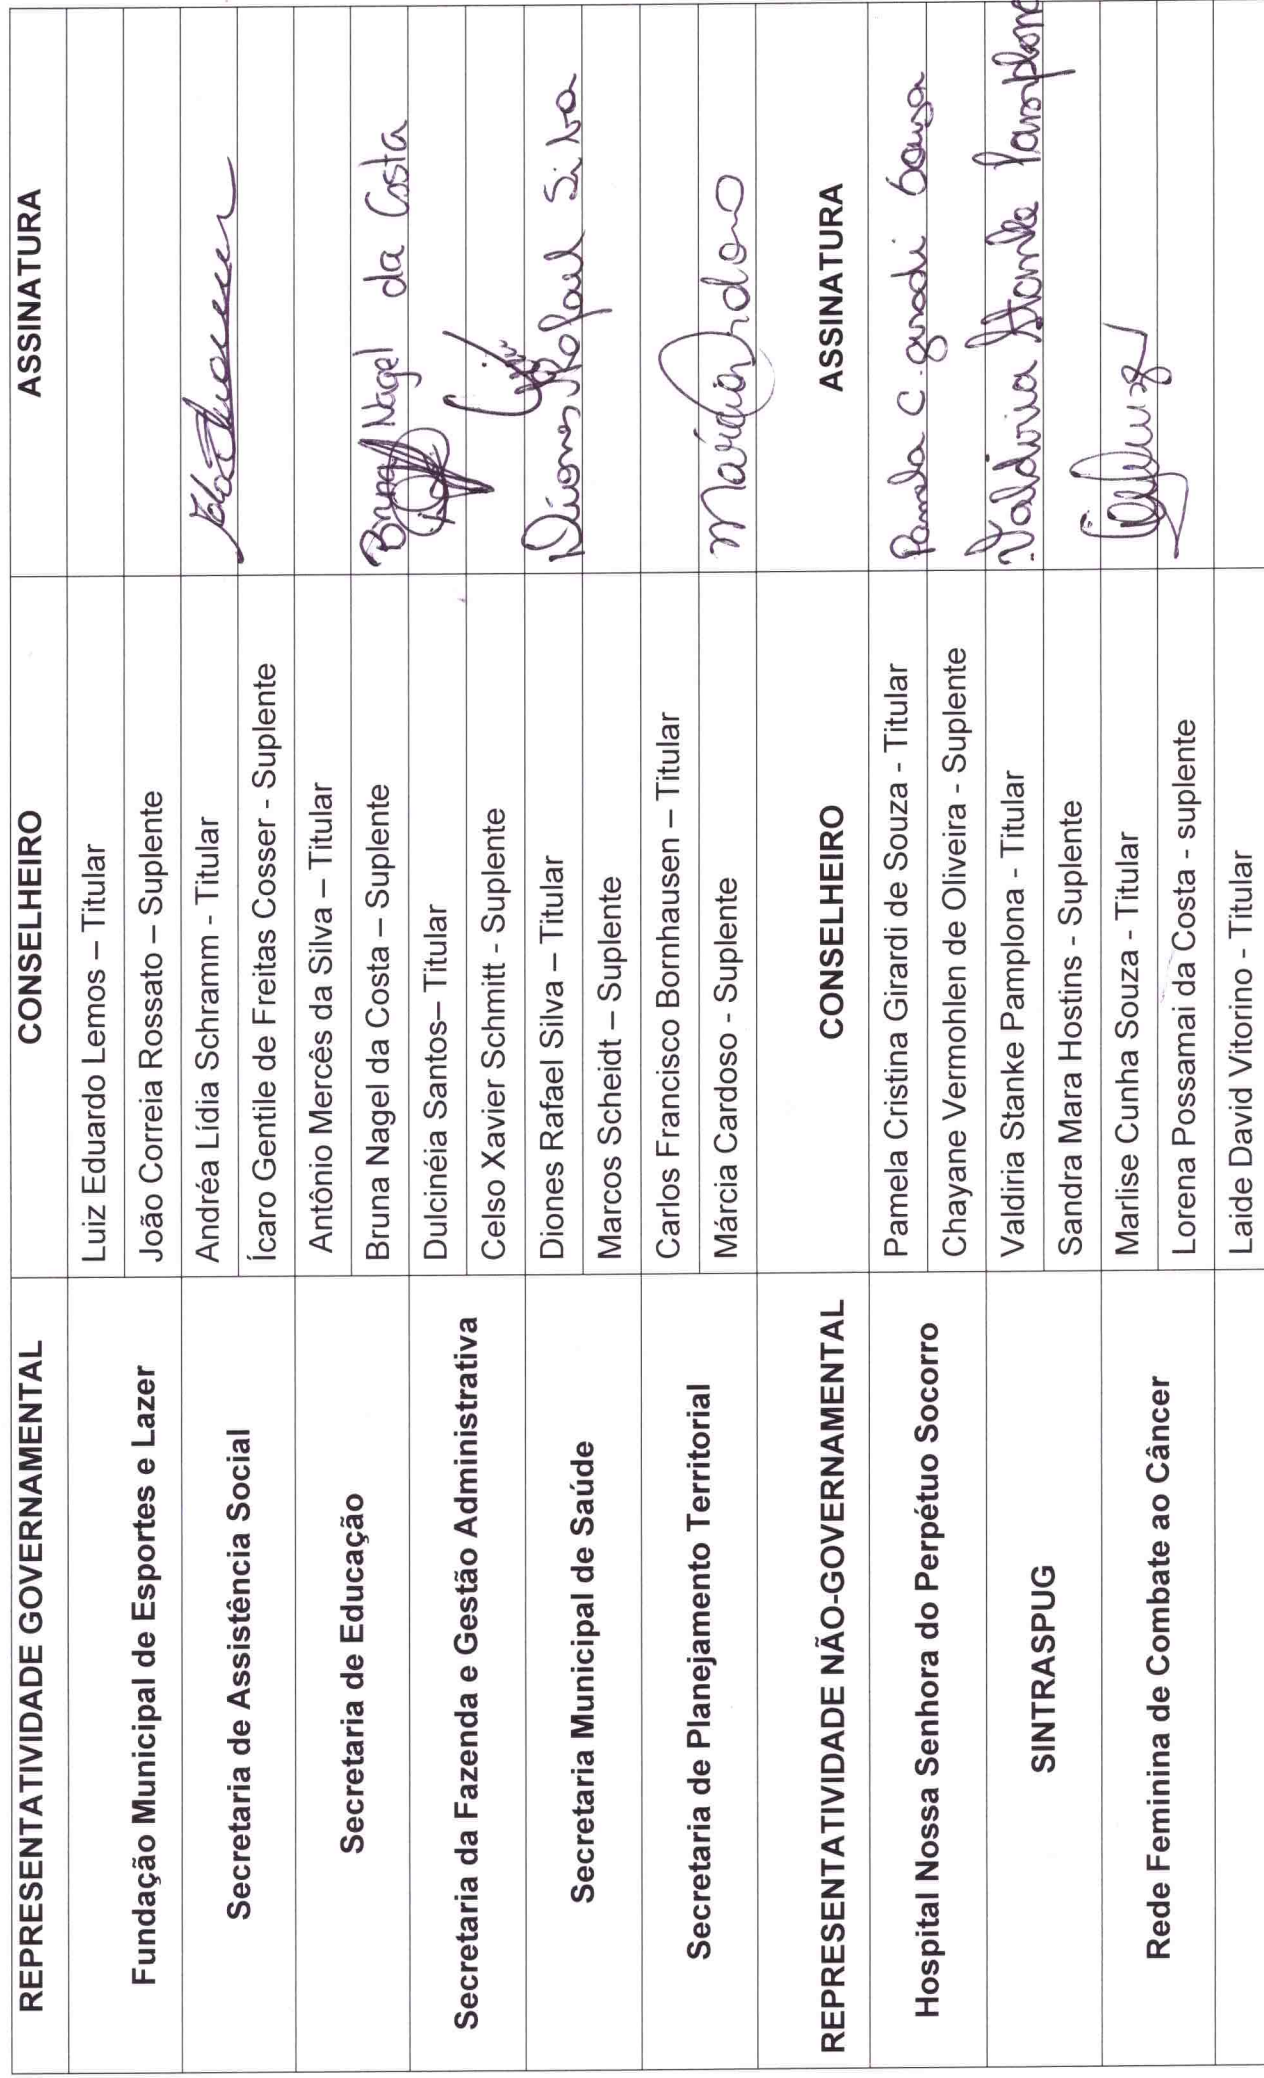 REPRESENTATIVIDADE GOVERNAMENTAL CONSELHEIRO ASSINATURA
Fundação Municipal de Esportes e Lazer
Luiz Eduardo Lemos – Titular
João Correia Rossato – Suplente
Secretaria de Assistência Social
Andréa Lídia Schramm - Titular
Ícaro Gentile de Freitas Cosser - Suplente
Secretaria de Educação
Antônio Mercês da Silva – Titular
Bruna Nagel da Costa – Suplente Bruna Nagel da Costa
Secretaria da Fazenda e Gestão Administrativa
Dulcinéia Santos– Titular
Celso Xavier Schmitt - Suplente
Secretaria Municipal de Saúde
Diones Rafael Silva – Titular Diones Rafael Silva
Marcos Scheidt – Suplente
Secretaria de Planejamento Territorial
Carlos Francisco Bornhausen – Titular
Márcia Cardoso - Suplente Márcia
REPRESENTATIVIDADE NÃO-GOVERNAMENTAL CONSELHEIRO ASSINATURA
Hospital Nossa Senhora do Perpétuo Socorro
Pamela Cristina Girardi de Souza - Titular Pamela C. girardi Souza
Chayane Vermohlen de Oliveira - Suplente
SINTRASPUG
Valdiria Stanke Pamplona - Titular Valdiria Stanke Pamplona
Sandra Mara Hostins - Suplente
Rede Feminina de Combate ao Câncer
Marlise Cunha Souza - Titular
Lorena Possamai da Costa - suplente
Laide David Vitorino - Titular